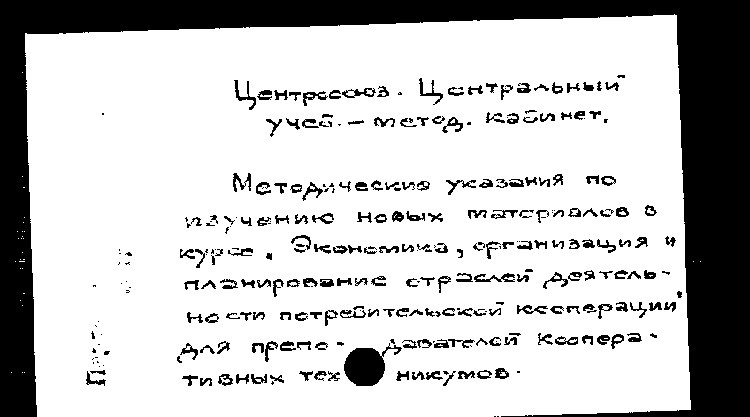 Центросоюз. Центральный
учеб. – метод. кабинет.
Методические указания по
изучению новых материалов в
курсе „Экономика, организация и
планирование отраслей деятель-
ности потребительской кооперации"
для препо- давателей коопера-
тивных тех никумов.